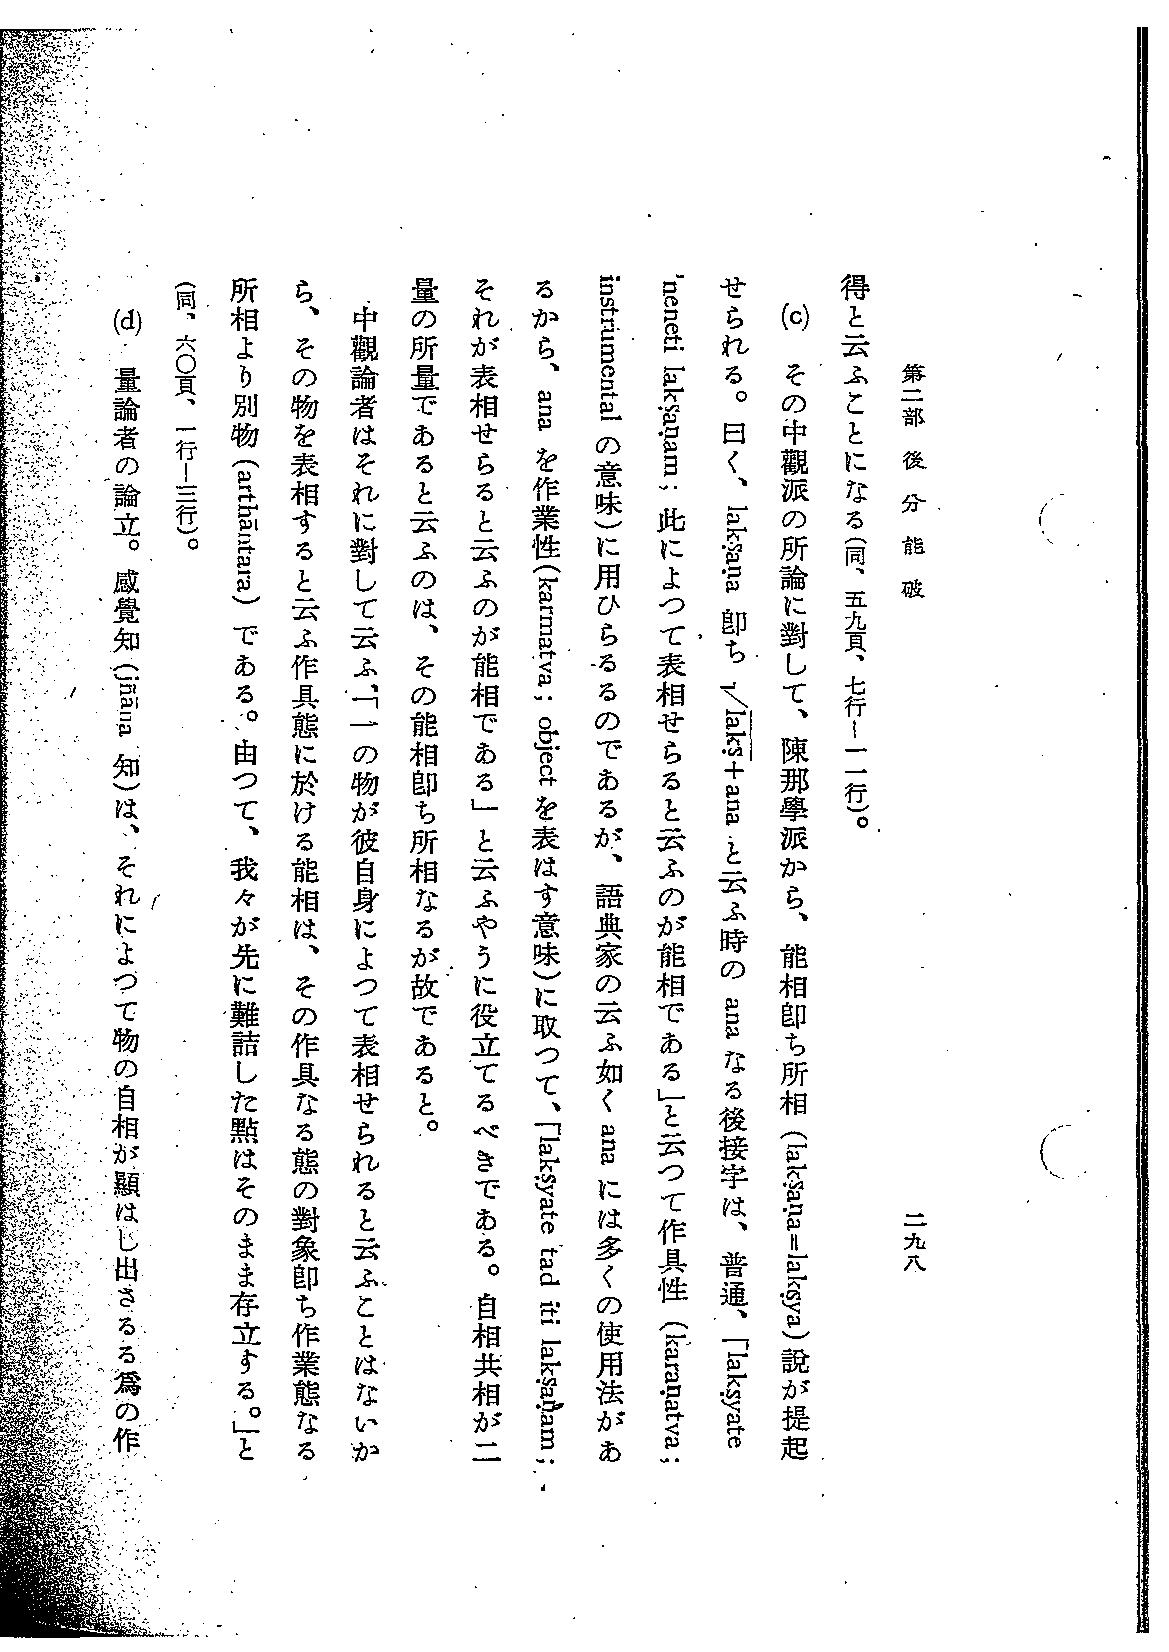 第二部 後分能破
二九八
得と云ふことになる(同、五九頁、七行—一一行)。
(c) その中觀派の所論に對して、陳那學派から、能相卽ち所相 (lakṣaṇa=lakṣya)說が提起
せられる。曰く、lakṣaṇa 卽ち √lakṣ+ana と云ふ時の ana なる後接字は、普通、「lakṣyate
'neneti lakṣaṇam; 此によつて表相せらると云ふのが能相である」と云つて作具性 (karaṇatva;
instrumental の意味)に用ひらるるのであるが、語典家の云ふ如く ana には多くの使用法があ
るから、ana を作業性(karmatva; object を表はす意味)に取つて、「lakṣyate tad iti lakṣaṇam;
それが表相せらると云ふのが能相である」と云ふやうに役立てるべきである。自相共相が二
量の所量であると云ふのは、その能相卽ち所相なるが故であると。
中觀論者はそれに對して云ふ、「一の物が彼自身によつて表相せられると云ふことはないか
ら、その物を表相すると云ふ作具態に於ける能相は、その作具なる態の對象卽ち作業態なる
所相より別物(arthāntara) である。由つて、我々が先に難詰した點はそのまま存立する。」と
(同、六〇頁、一行—三行)。
(d) 量論者の論立。感覺知(jñāna 知)は、それによつて物の自相が顯はし出さるる爲の作